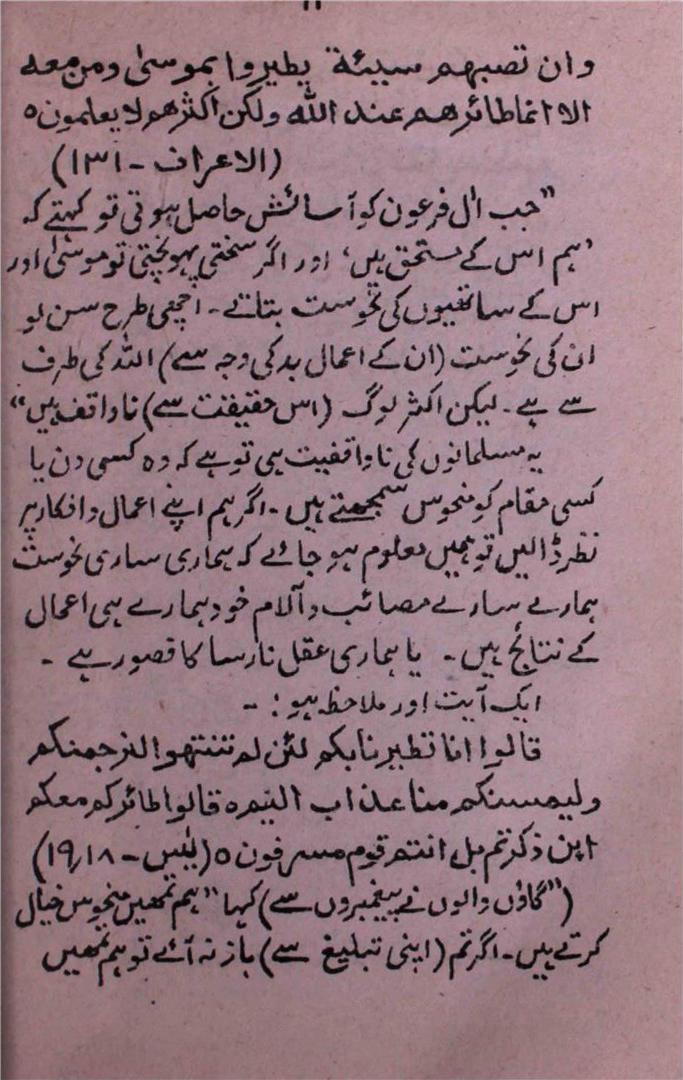 وان تصبهم سیئة یطیروا بموسیٰ ومن معه
الا انما طائرهم عند الله ولکن اکثرهم لا یعلمون٥
(الاعراف - ۱۳۱)
”جب اٰل فرعون کو آسائش حاصل ہوتی تو کہتے کہ
’ہم اس کے مستحق ہیں‘ اور اگر سختی پہونچتی تو موسیٰ اور
اس کے ساتھیوں کی نحوست بتاتے - اچھی طرح سن لو
ان کی نحوست (ان کے اعمال بد کی وجہ سے) اللہ کی طرف
سے ہے - لیکن اکثر لوگ (اس حقیقت سے) ناواقف ہیں“
یہ مسلمانوں کی ناواقفیت ہی تو ہے کہ وہ کسی دن یا
کسی مقام کو منحوس سمجھتے ہیں - اگر ہم اپنے اعمال و افکار پر
نظر ڈالیں تو ہمیں معلوم ہو جائے کہ ہماری ساری نحوست
ہمارے سارے مصائب و آلام خود ہمارے ہی اعمال
کے نتائج ہیں - یا ہماری عقل نارسا کا قصور ہے -
ایک آیت اور ملاحظہ ہو : -
قالوا انا تطیرنا بکم لئن لم تنتهوا لنرجمنکم
ولیمسنکم منا عذاب الیم٥ قالوا طائرکم معکم
ائن ذکرتم بل انتم قوم مسرفون٥ (یٰسٓ - ۱۹،۱۸)
(”گاؤں والوں نے پیغمبروں سے) کہا ”ہم تمھیں منحوس خیال
کرتے ہیں - اگر تم (اپنی تبلیغ سے) باز نہ آئے تو ہم تمھیں